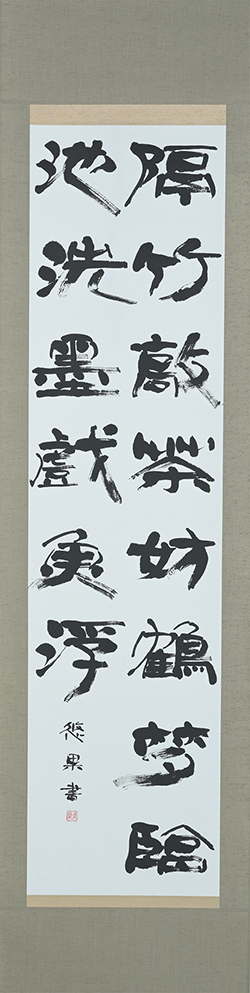 隔竹敲茶妨鶴梦臨
池洗墨戯魚浮
悠果書